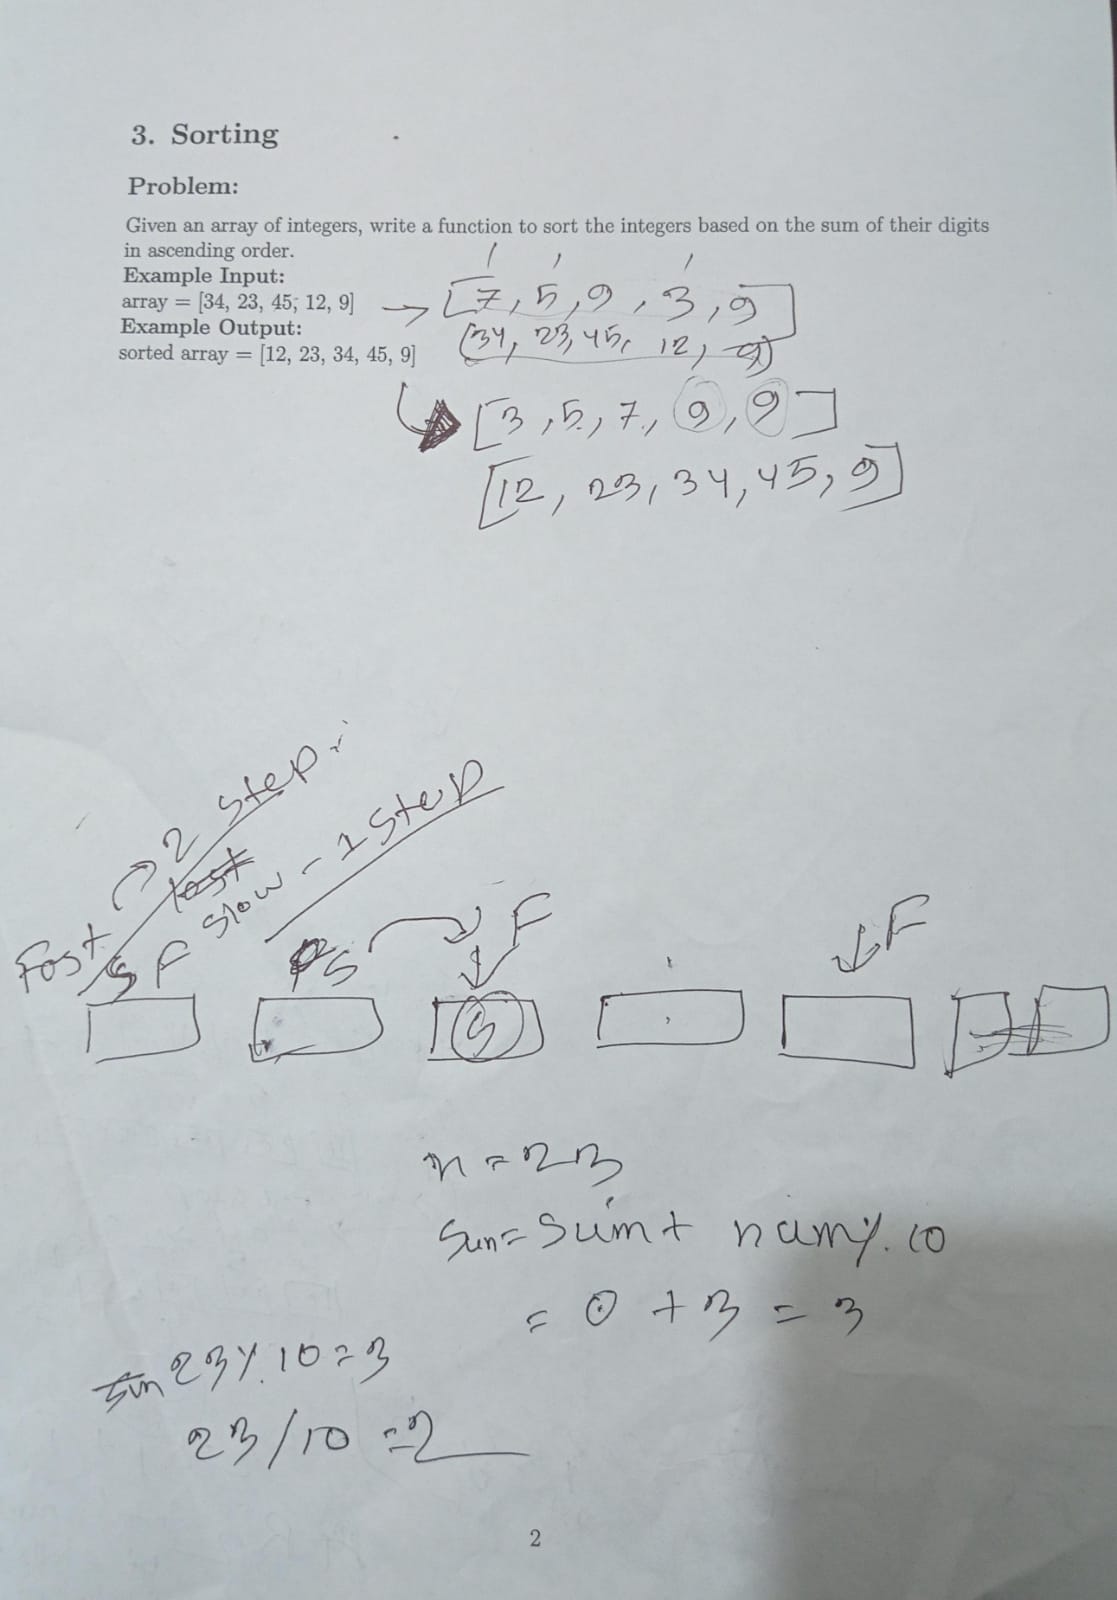 3. Sorting
Problem:
Given an array of integers, write a function to sort the integers based on the sum of their digits
in ascending order.
Example Input:
array = [34, 23, 45, 12, 9] → [7, 5, 9, 3, 9]
(34, 23, 45, 12, 9)
Example Output:
sorted array = [12, 23, 34, 45, 9]
[3, 5, 7, 9, 9]
[12, 23, 34, 45, 9]
Fast 2 Step
Slow - 1 Step
S F
S
F
F
S
n = 23
Sum = Sum + num % 10
= 0 + 3 = 3
23 % 10 = 3
23 / 10 = 2
2